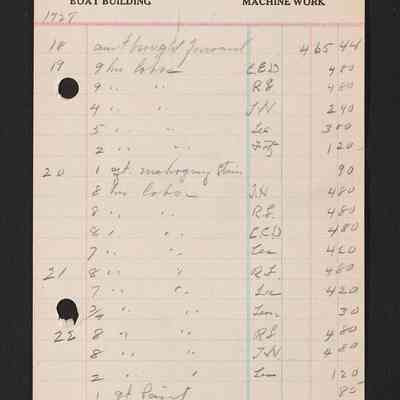 BOAT BUILDING MACHINE WORK
1927
18 am't brought forward 465 44
19 9 hrs labor C.E.D 4 80
9 " " R.L. 4 80
4 " " J.N. 2 40
5 " " Len 3 00
2 " " 1 20
20 1 qt. mahogany stain 90
8 hrs labor J.N 4 80
8 " " R.L. 4 80
8 " " C.E.D 4 80
7 " " Len 4 20
21 8 " " R.L. 4 80
7 " " Len 4 20
" " Len 30
22 8 " " R.L 4 80
8 " " J.N 4 80
2 " " Len 1 20
1 qt Paint 85